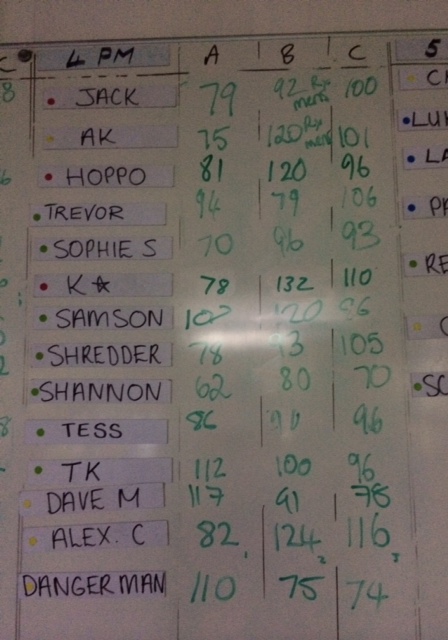 C 4 PM A B C 5
8 JACK 79 92 Rx men's 100
AK 75 120 Rx men's 101 LU
HOPPO 81 120 96 LA
TREVOR 94 79 106
SOPHIE S 70 96 93 RE
K☆ 78 132 110
SAMSON 120
SHREDDER 78 93 105
SHANNON 62 80 70 SC
8 TESS 86 96
TK 112 100 96
DAVE M 117 91 78
ALEX. C 82 124 116
DANGERMAN 110 75 74